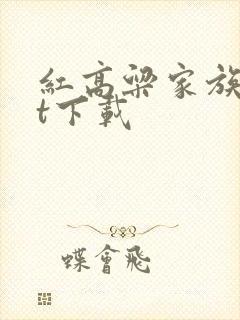 紅高粱家族
t下載
蝶會飛